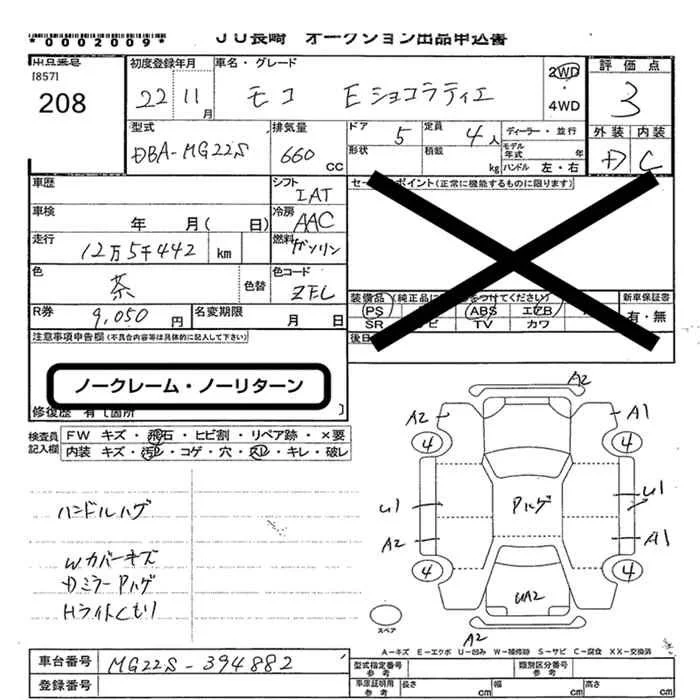 *0002009*
JU長崎 オークション出品申込書
出品番号
[857]
208
初度登録年月
22 11月
車名・グレード
モコ Eショコラティエ
2WD
・
4WD
評価点
3
外装 内装
D C
型式
DBA-MG22S
排気量
660 CC
ドア 5
定員 4人
ディーラー・並行
形状
積載 kg
モデル年式 年
ハンドル 左・右
車歴
シフト
IAT
セールスポイント(正常に機能するものに限ります)
車検
年 月( 日)
冷房
AAC
走行
12万5千442 km
燃料
ガソリン
色
茶
色替
色コード
ZEL
装備品(純正品に をつけてください)
新車保証書
PS ABS エアB
有・無
SR ナビ TV カワ
R券
9,050 円
名変期限
月 日
注意事項申告欄(不具合内容等は具体的に記入して下さい)
後日
ノークレーム・ノーリターン
修復歴 有[箇所 ]
検査員
記入欄
FW キズ・飛石・ヒビ割・リペア跡・×要
内装 キズ・汚レ・コゲ・穴・スレ・キレ・破レ
ハンドルハゲ
Wカバーキズ
DミラーPハゲ
Hライトくもり
A2
A2
A1
4
4
U1
Pハゲ
U1
A2
A1
4
4
UA2
A2
スペア
A-キズ E-エクボ U-凹み W-補修跡 S-サビ C-腐食 XX-交換済
車台番号
MG22S-394882
登録番号
型式指定番号
参考
類別区分番号
参考
車庫証明用
参考
長さ cm
幅 cm
高さ cm